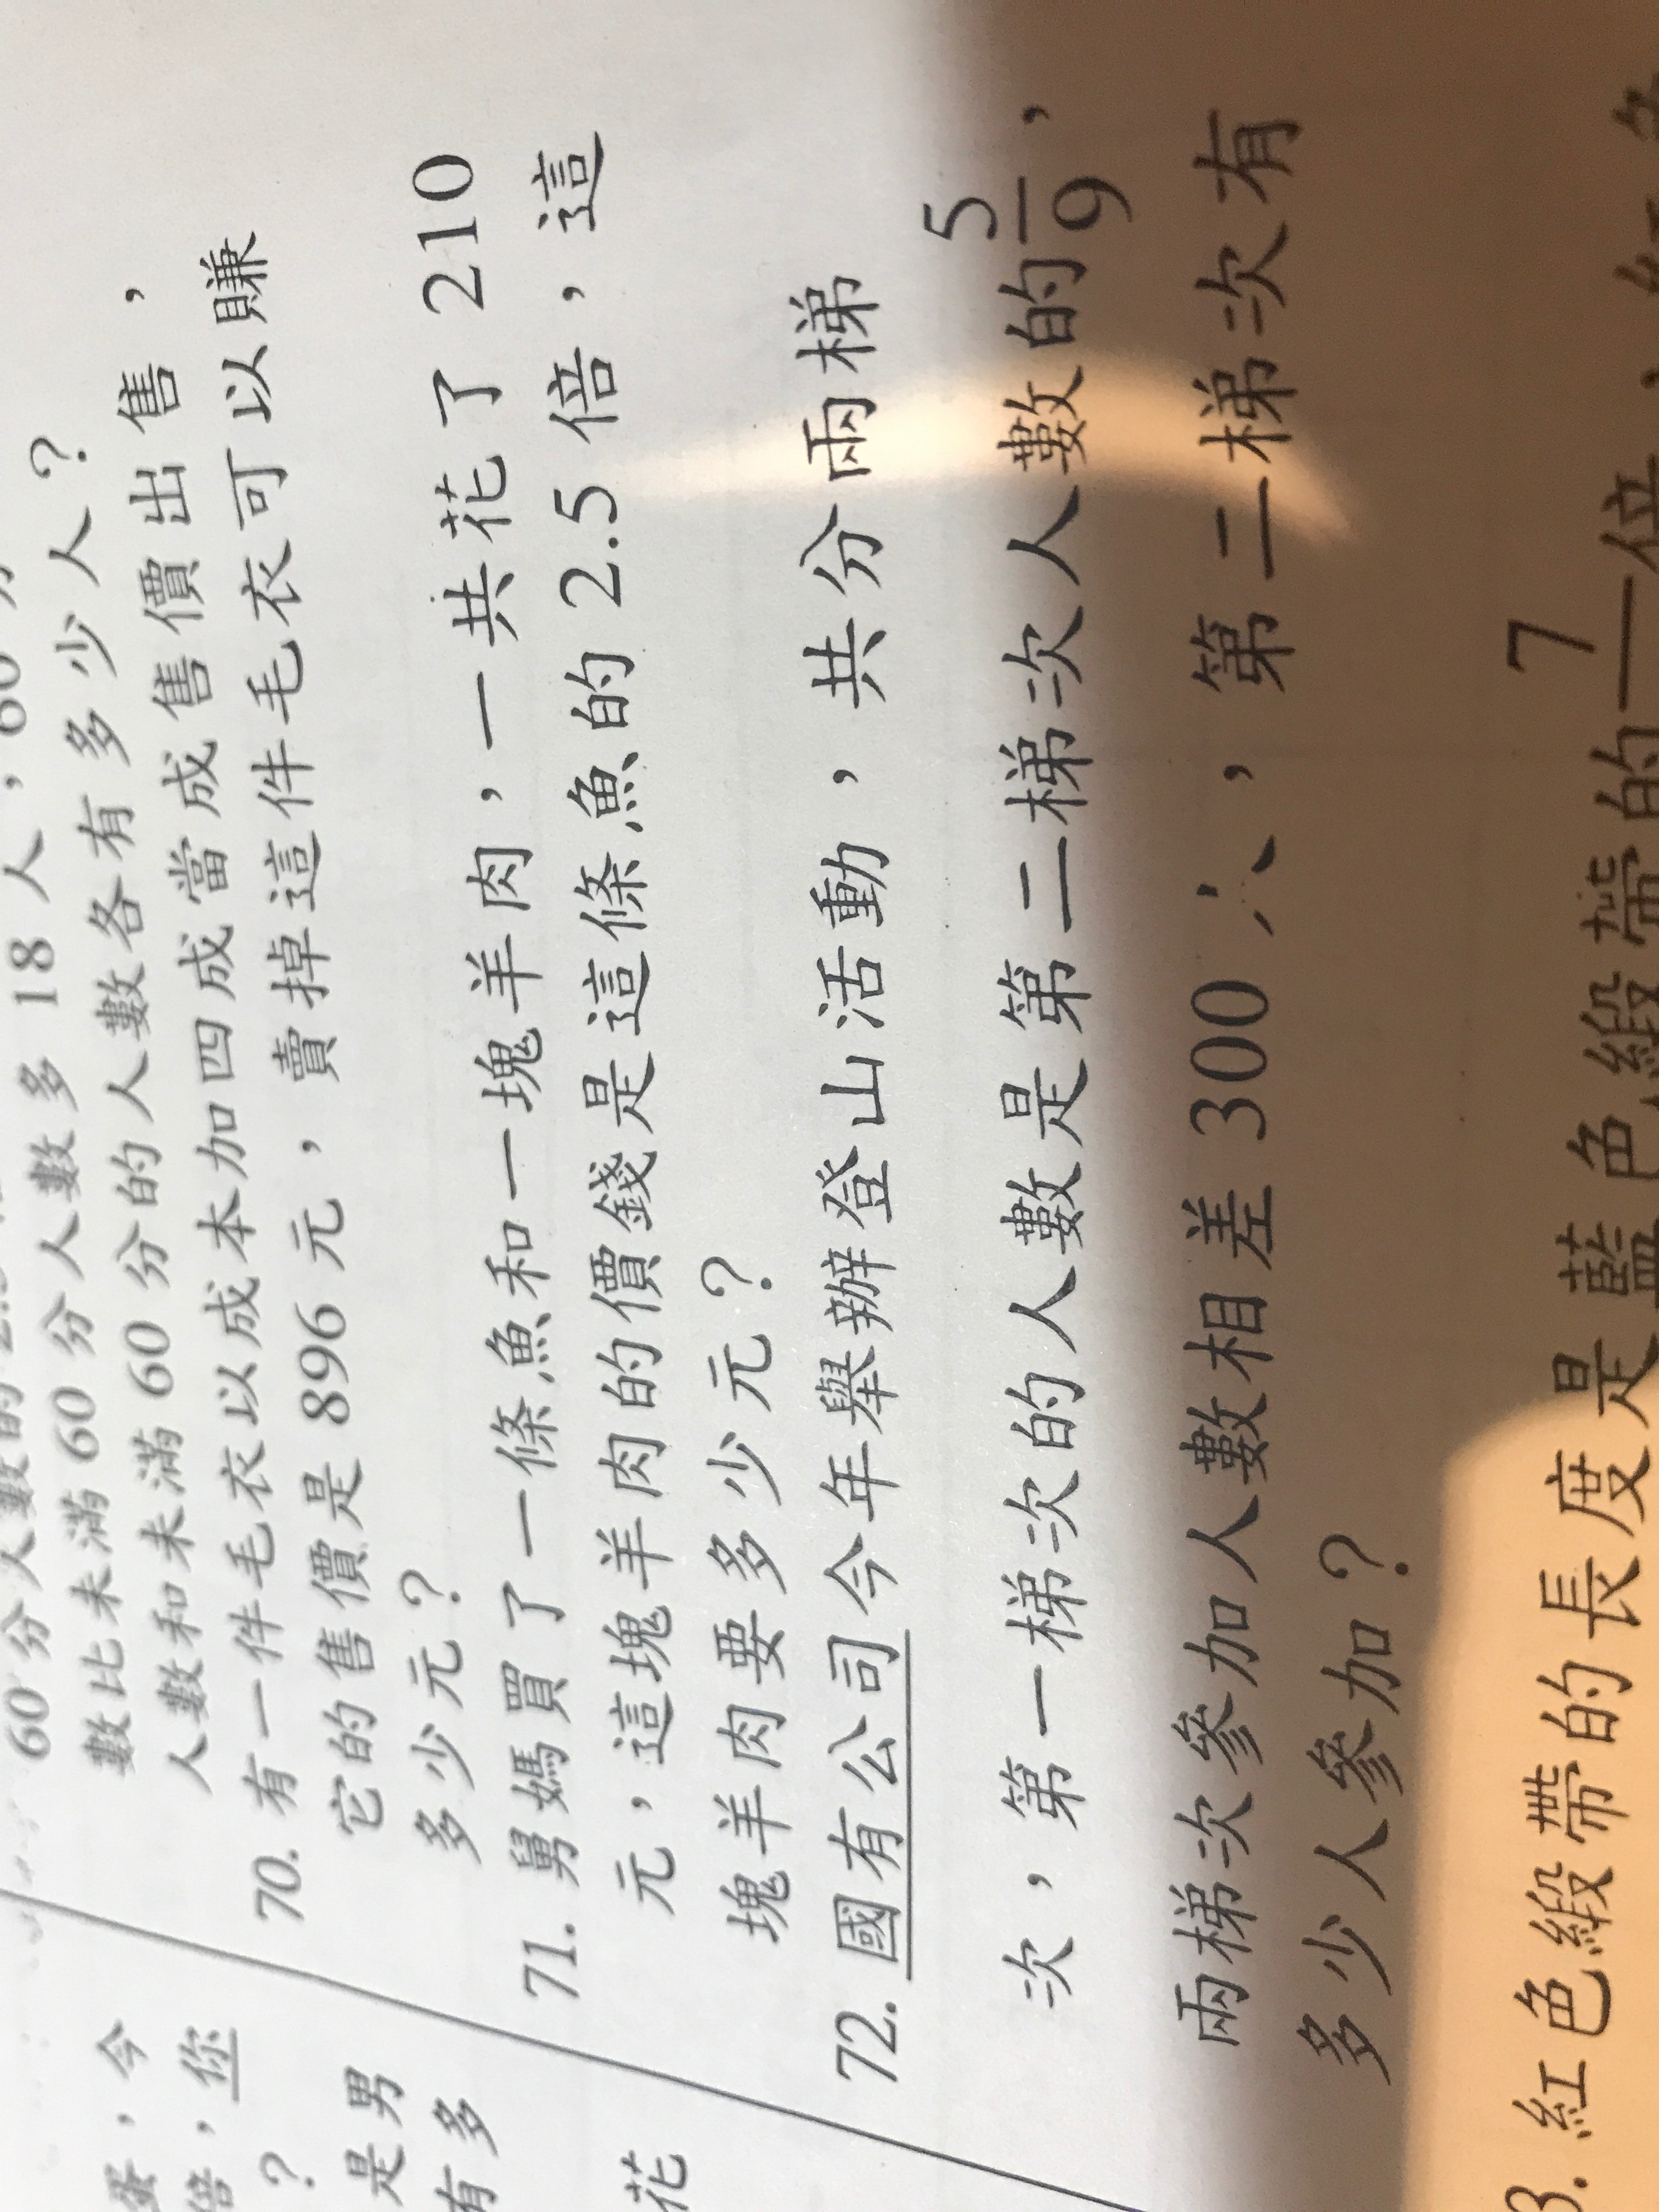 60 分人數的
數比未滿 60 分人數多 18 人，60
人數和未滿 60 分的人數各有多少人？
70. 有一件毛衣以成本加四成當成售價出售，
它的售價是 896 元，賣掉這件毛衣可以賺
多少元？
71. 舅媽買了一條魚和一塊羊肉，一共花了 210
元，這塊羊肉的價錢是這條魚的 2.5 倍，這
塊羊肉要多少元？
72. 國有公司今年舉辦登山活動，共分兩梯
次，第一梯次的人數是第二梯次人數的 5/9，
兩梯次參加人數相差 300 人，第二梯次有
多少人參加？
3. 紅色緞帶的長度是藍色緞帶的 7 倍
蛋，今
倍，你
？
是男
有多
花